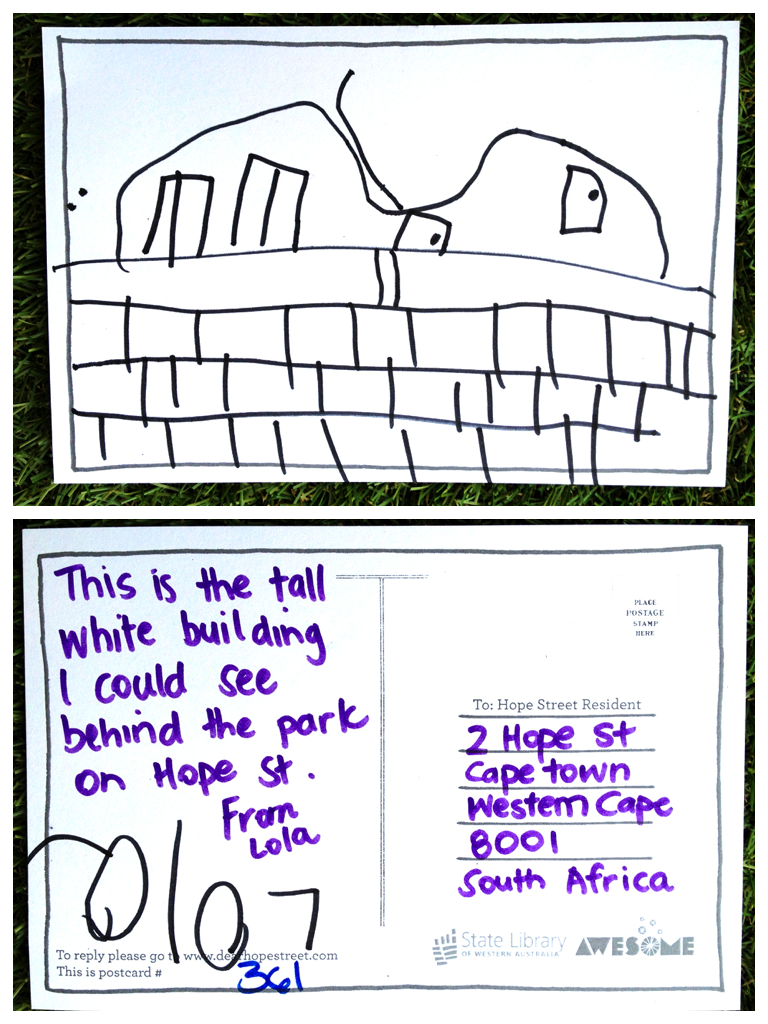 This is the tall
white building
I could see
behind the park
on Hope St.
From
Lola
To reply please go to www.dearhopestreet.com
This is postcard #
361
PLACE
POSTAGE
STAMP
HERE
To: Hope Street Resident
2 Hope St
Cape town
Western Cape
8001
South Africa
State Library
OF WESTERN AUSTRALIA
AWESOME